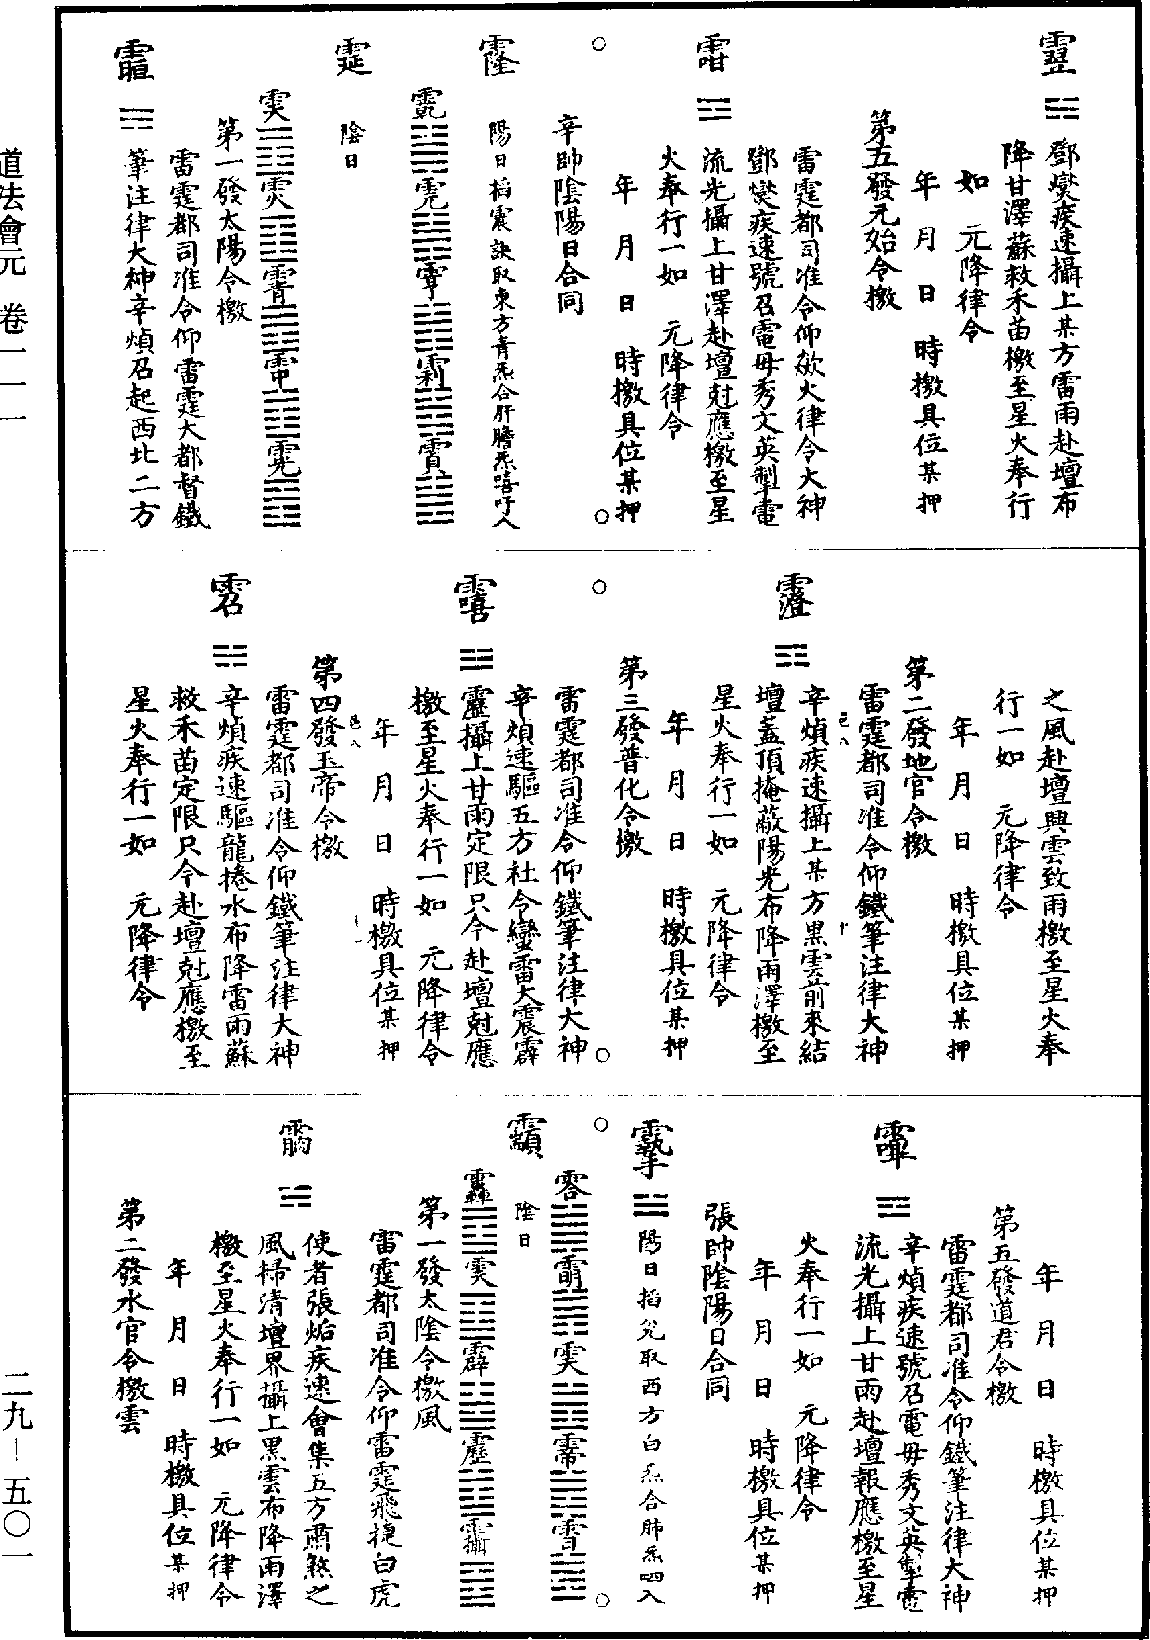 鄧燮疾速攝上某方雷雨赴壇布
降甘澤蘇救禾苗檄至星火奉行
如　元降律令
年　月　日　時檄具位某押
第五發元始令檄
雷霆都司准令仰欻火律令大神
鄧燮疾速號召電毋秀文英掣電
流光攝上甘澤赴壇尅應檄至星
火奉行一如　元降律令
年　月　日　時檄具位某押
辛帥陰陽日合同
陽日掐震訣取東方青炁合肝膽炁嘻吁入
陰日
第一發太陽令檄
雷霆都司准令仰雷霆大都督鐵
筆注律大神辛煩召起西北二方
之風赴壇興雲致雨檄至星火奉
行一如　元降律令
年　月　日　時檄具位某押
第二發地官令檄
雷霆都司准令仰鐵筆注律大神
辛煩疾速攝上某方黑雲前來結
壇蓋頂掩蔽陽光布降雨澤檄至
星火奉行一如　元降律令
年　月　日　時檄具位某押
第三發普化令檄
雷霆都司准令仰鐵筆注律大神
辛煩速驅五方社令蠻雷大震霹
靂攝上甘雨定限只今赴壇尅應
檄至星火奉行一如　元降律令
年　月　日　時檄具位某押
第四發玉帝令檄
雷霆都司准令仰鐵筆注律大神
辛煩疾速驅龍捲水布降雷雨蘇
救禾苗定限只今赴壇尅應檄至
星火奉行一如　元降律令
年　月　日　時檄具位某押
第五發道君令檄
雷霆都司准令仰鐵筆注律大神
辛煩疾速號召電毋秀文英掣電
流光攝上甘雨赴壇報應檄至星
火奉行一如　元降律令
年　月　日　時檄具位某押
張帥陰陽日合同
陽日掐兌取西方白炁合肺炁呬入
陰日
第一發太陰令檄風
雷霆都司准令仰雷霆飛捷白虎
使者張姤疾速會集五方肅煞之
風掃清壇界攝上黑雲布降雨澤
檄至星火奉行一如　元降律令
年　月　日　時檄具位某押
第二發水官令檄雲
道法會元　卷一一一
二九－五〇一